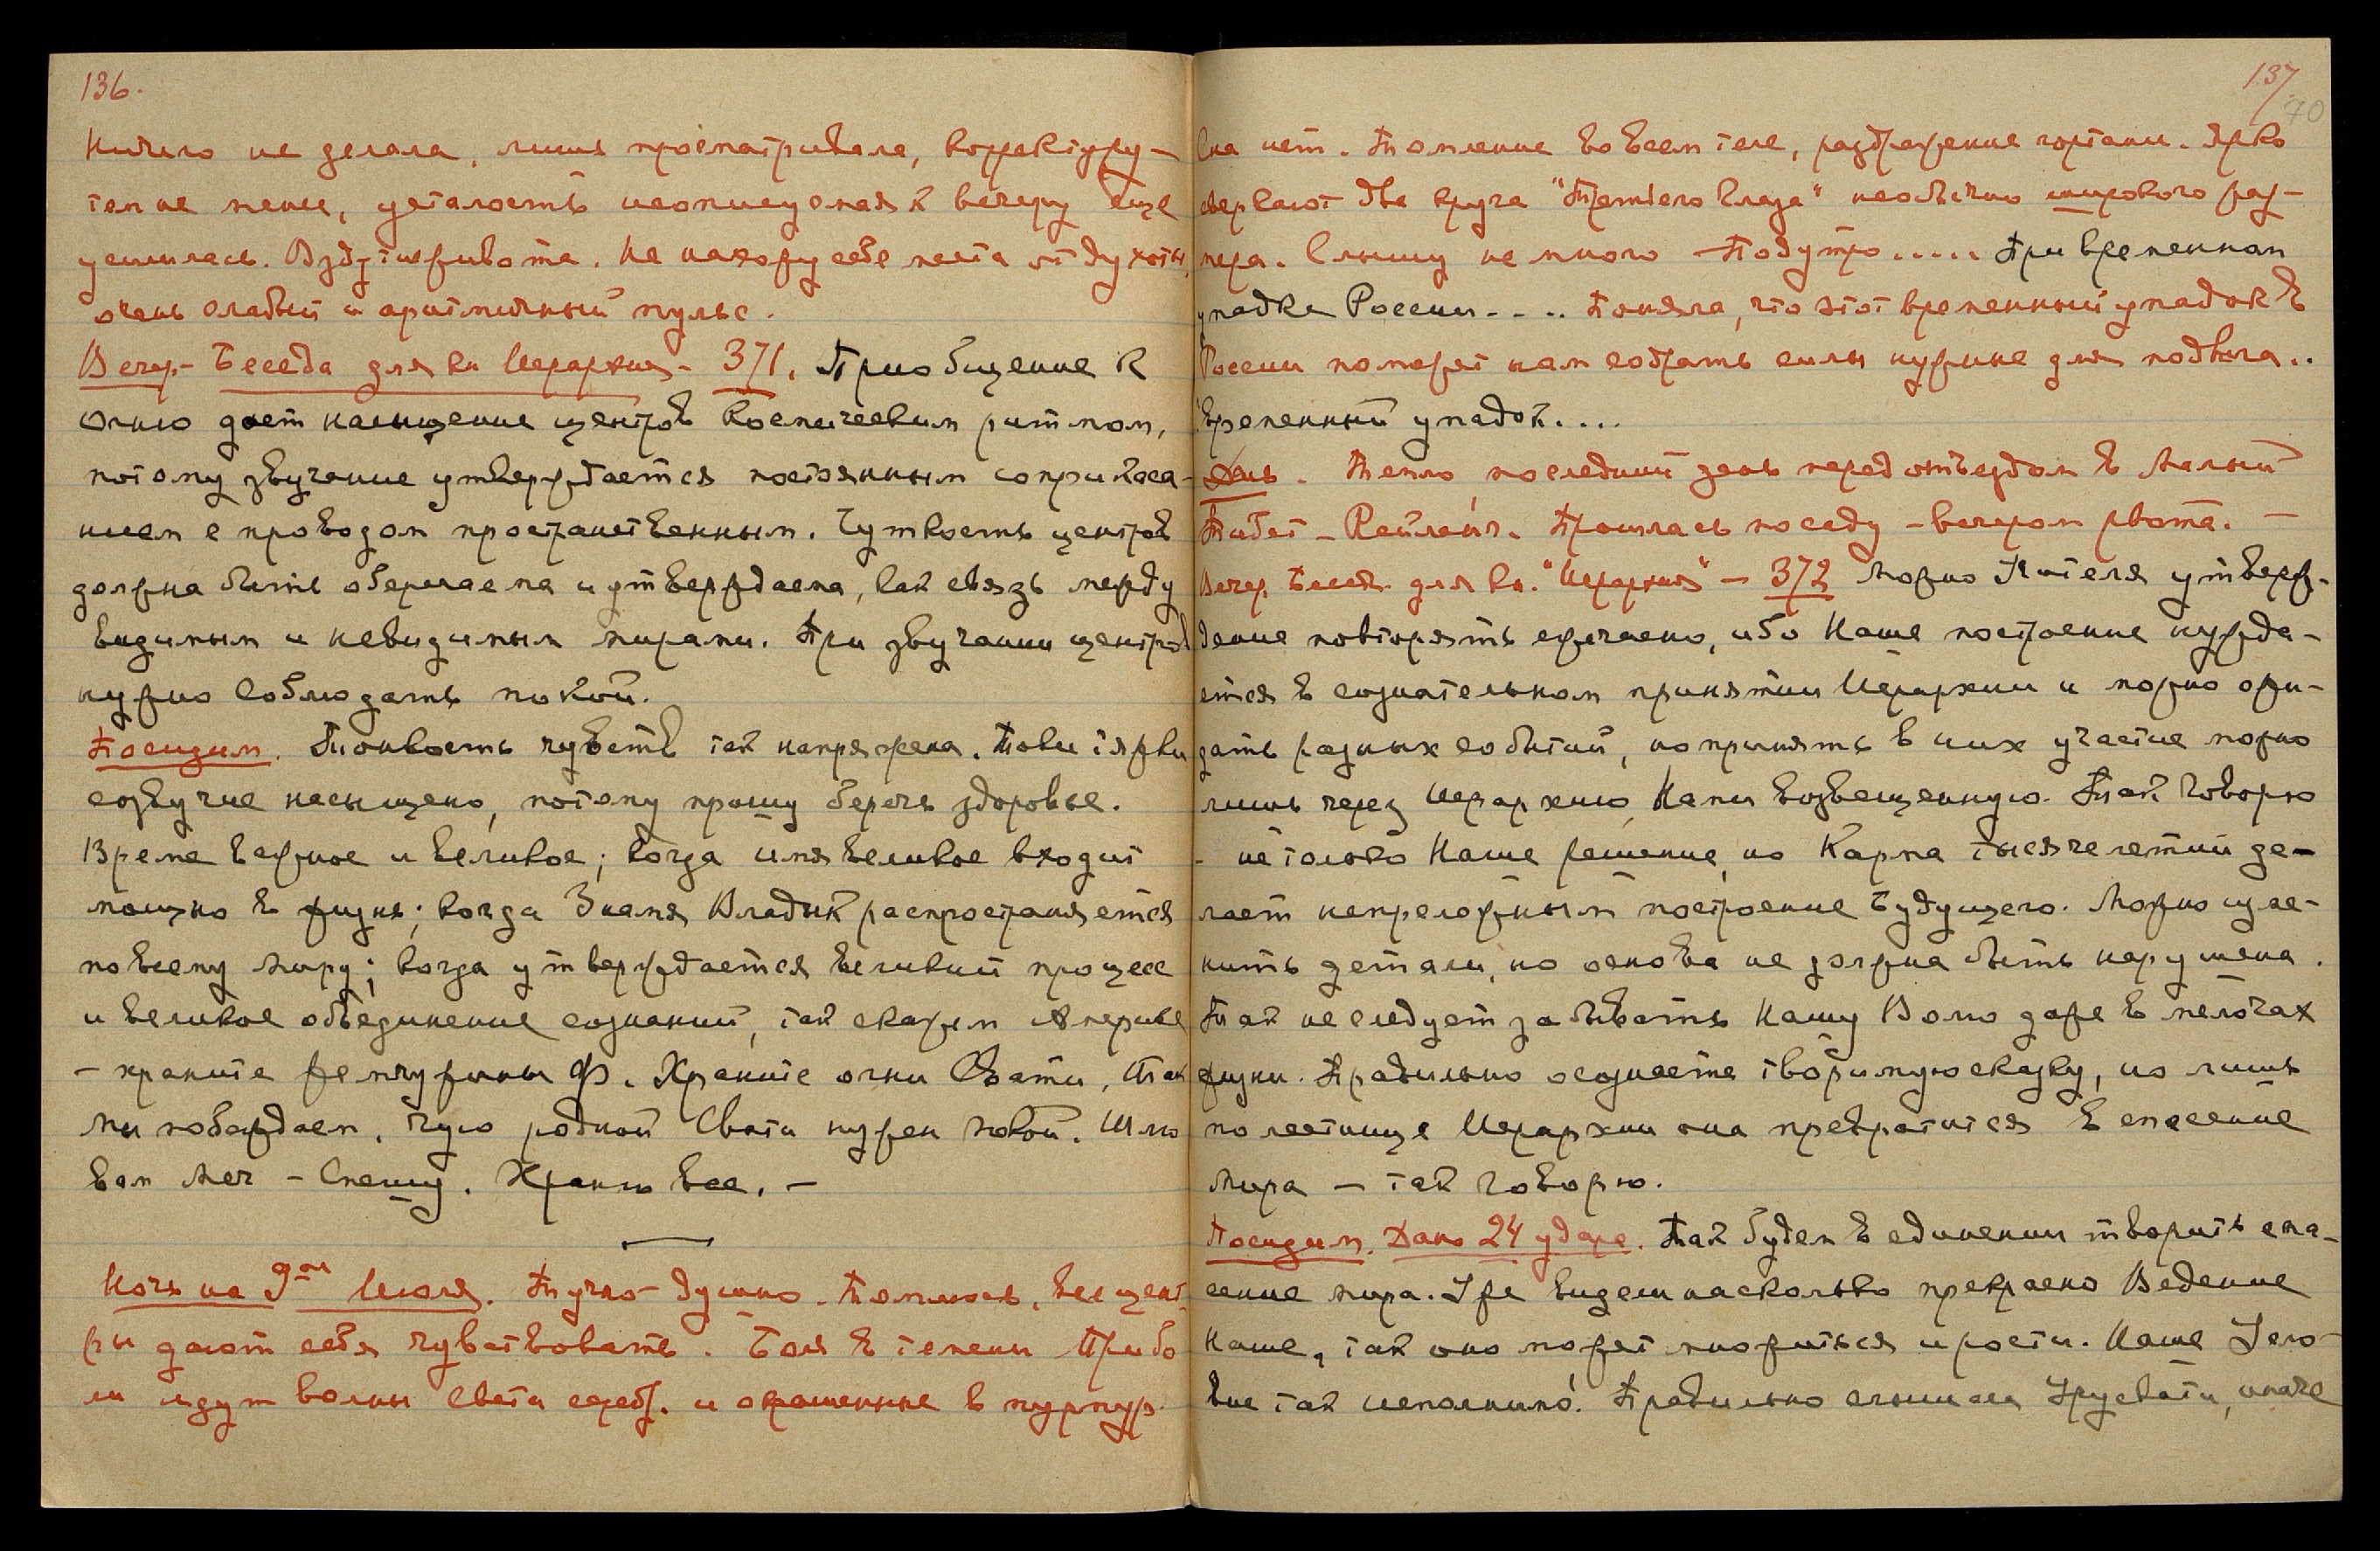 136.
Ничего не делала, лишь просматривала, корректуру –
тем не менее, усталость неописуемая к вечеру еще
усилилась. Вздутие живота. Не нахожу себе места от духоты,
очень слабый и аритмичный пульс.
Вечер.- Беседа для кн Иерархия - 371. Приобщение к
огню дает насыщение центров космическим ритмом,
потому звучание утверждается постоянным соприкоса-
нием с проводом пространственным. Чуткость центров
должна быть оберегаема и утверждаема, как связь между
видимым и невидимым мирами. При звучании центров
нужно соблюдать покой.
Посидим. Тонкость чувств так напряжена.
созвучие насыщено, потому прошу беречь здоровье.
Время важное и великое; когда имя великое входит
мощно в жизнь; когда Знамя Владык распространяется
по всему миру; когда утверждается великий процесс
и великое объединение сознаний, так скажем Америке
– храните жемчужины Ф. Храните огни Свати, Так
мы побеждаем. Чую родной Свати нужен покой. Шлю
вам меч – Спешу. Храню все. –
Ночь на 9ое Июля. Тучно- душно. Томилась, все цент-
ры дают себя чувствовать. Боль в темени При бо
ли идут волны света сереб. и окрашенные в пурпур.
137
70
Сна нет. Томление во всем теле, раздражение гортани. Ярко
сверкают два круга "Третьего Глаза" необычно широкого раз-
мера. Слышу не много – Под утро..... При временном
упадке России.... Поняла, что этот временный упадок в
России поможет нам собрать силы нужные для подвига..
временный упадок....
День. Тепло, последний день перед отъездом в Малый
Тибет – Кейланг. Прошлась по саду – вечером рвота. –
Вечер. Беседа для кн. "Иерархия" – 372 Можно Учителя утверж-
дение повторять ежечасно, ибо Наше построение нужда-
ется в сознательном принятии Иерархии и можно ожи-
дать разных событий, но принять в них участие можно
лишь через Иерархию, Нами возвещенную. Так Говорю
- не только Наше решение, но Карма тысячелетий де-
лает непреложным построение будущего. Можно изме-
нить детали, но основа не должна быть нарушена.
Так не следует забывать Нашу Волю даже в мелочах
жизни. Правильно осознаете творимую сказку, но лишь
по лестнице Иерархии она превратится в спасение
мира – так Говорю.
Посидим. Дано 24 удара. Так будем в единении творить спа-
сение мира. Уже видели насколько прекрасно Ведение
Наше, так оно может множиться и расти. Наше Усло-
вие так исполнимо! Правильно слышала Урусвати, иначе